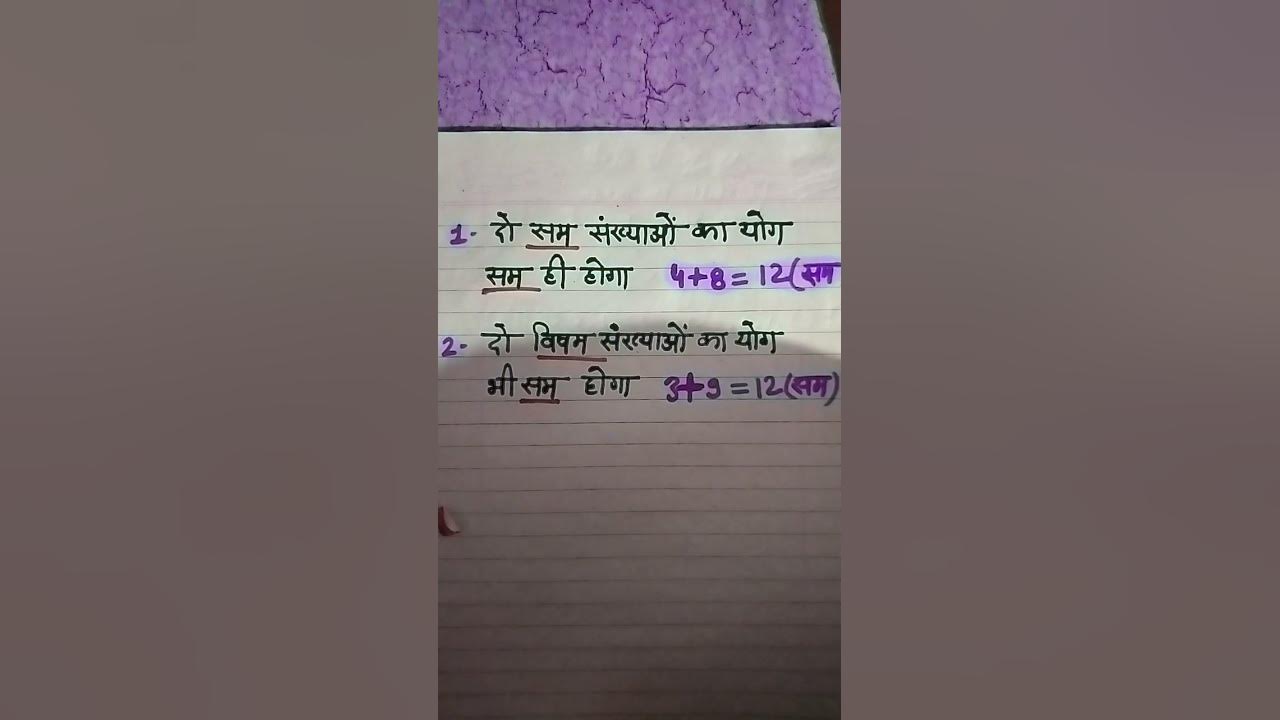 1- दो सम संख्याओं का योग
सम ही होगा 4+8=12(सम
2- दो विषम संख्याओं का योग
भी सम होगा 3+9=12(सम)